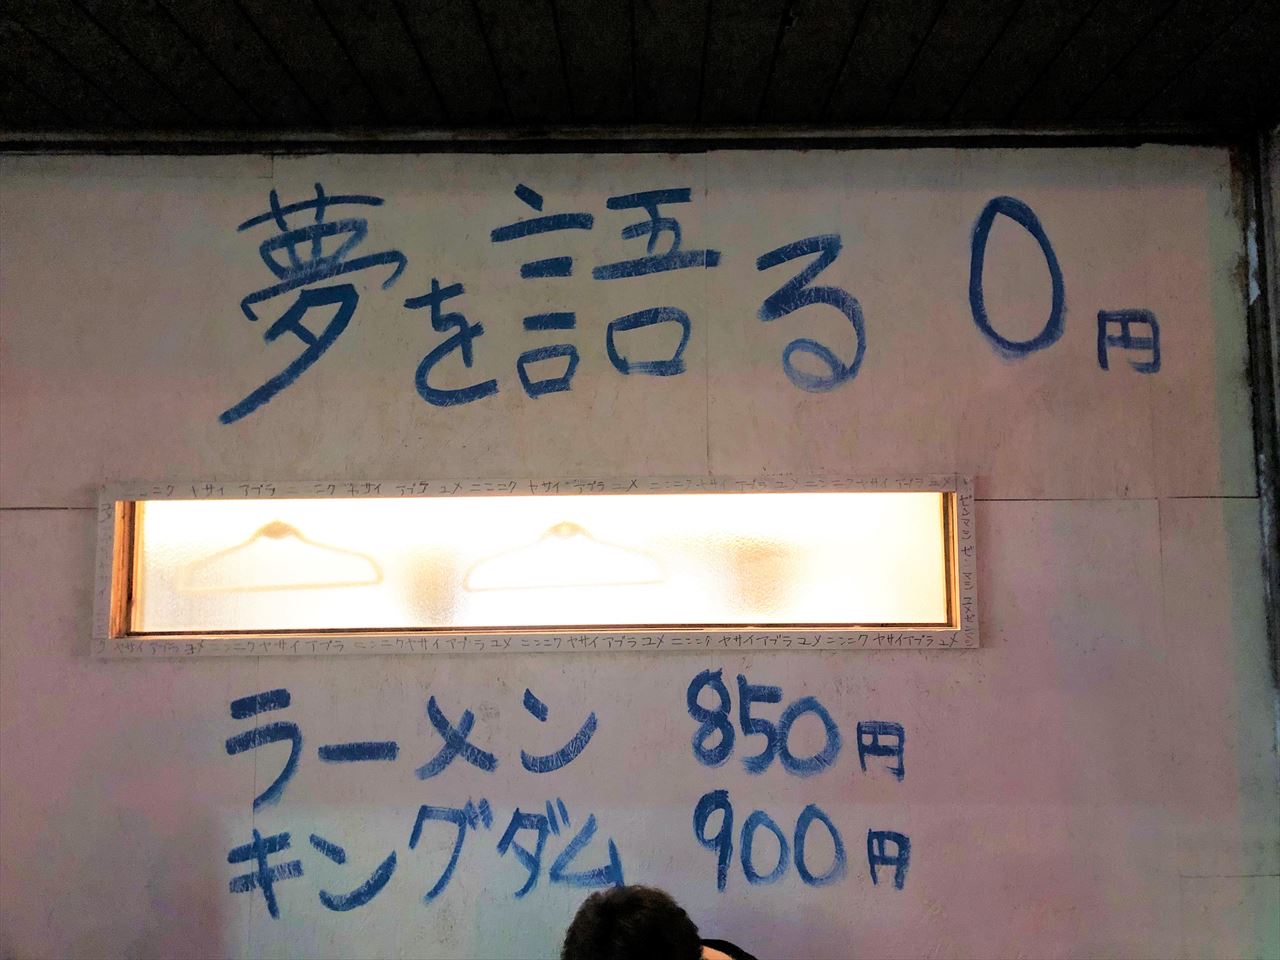 夢を語る 0円
ニンニク ヤサイ アブラ ニンニク ヤサイ アブラ ユメ ニンニク ヤサイ アブラ ユメ ニンニク ヤサイ アブラ ユメ ニンニク ヤサイ アブラ ユメ
ヤサイ アブラ ユメ ニンニク ヤサイ アブラ ニンニク ヤサイ アブラ ユメ ニンニク ヤサイ アブラ ユメ ニンニク ヤサイ アブラ ユメ ニンニク ヤサイ アブラ ユメ
ラーメン 850円
キングダム 900円